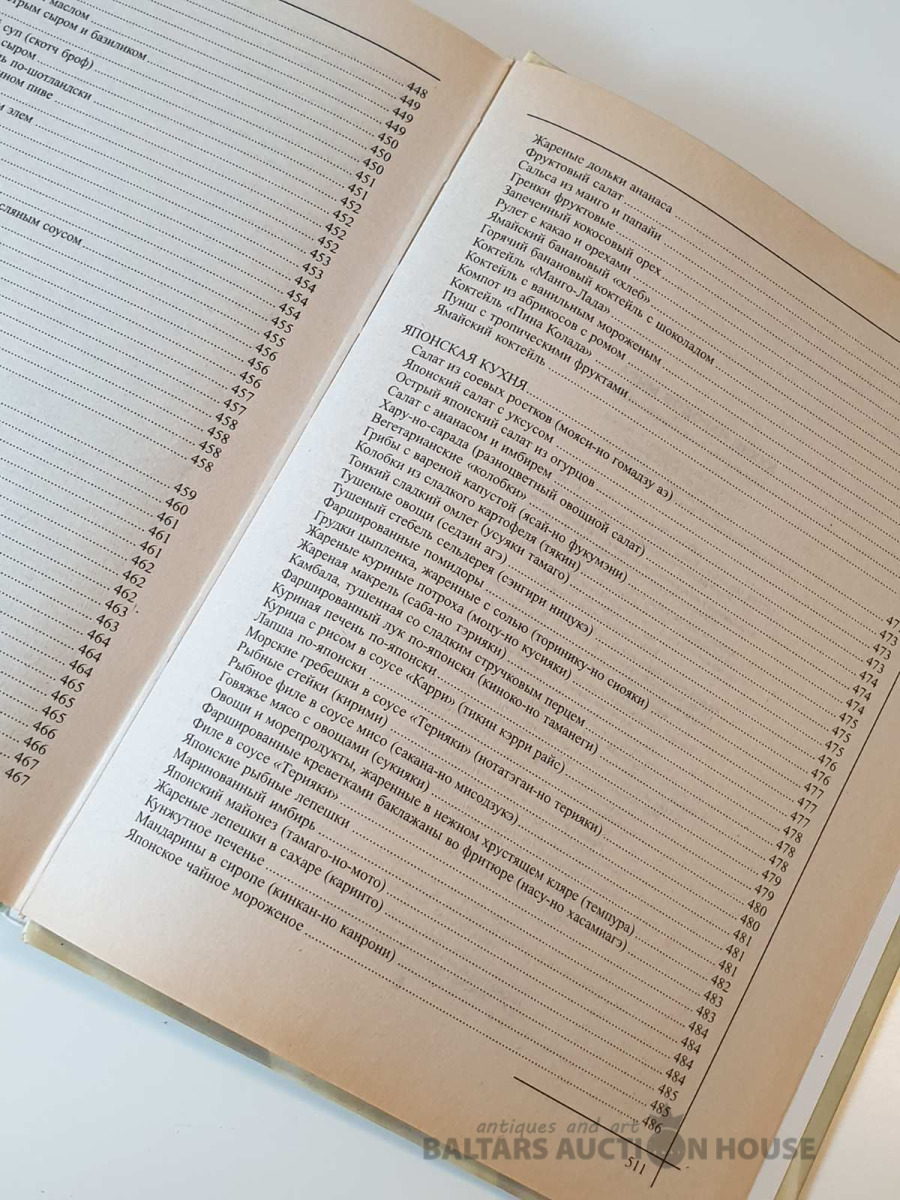 маслом
трым сыром и базиликом
суп (скотч броф)
сыром
ь по-шотландски
ном пиве
м элем
сляным соусом
448
449
449
449
450
450
450
451
451
452
452
452
452
453
453
454
454
454
455
455
456
456
456
457
457
458
458
458
458
459
460
461
461
461
462
462
462
463
463
464
464
464
465
465
465
466
466
467
467
Жареные дольки ананаса
Фруктовый салат
Сальса из манго и папайи
Гренки фруктовые
Запеченный кокосовый орех
Рулет с какао и орехами
Ямайский банановый «хлеб»
Горячий банановый коктейль с шоколадом
Коктейль «Манго-Лада»
Коктейль с ванильным мороженым
Компот из абрикосов с ромом
Коктейль «Пина Колада»
Пунш с тропическими фруктами
Ямайский коктейль
ЯПОНСКАЯ КУХНЯ
Салат из соевых ростков (мояси-но гомадзу аэ)
Японский салат с уксусом
Острый японский салат из огурцов
Салат с ананасом и имбирем
Хару-но-сарада (разноцветный овощной салат)
Вегетарианские «колобки»
Грибы с вареной капустой (ясай-но фукумэни)
Колобки из сладкого картофеля (тякин)
Тонкий сладкий омлет (усуяки тамаго)
Тушеные овощи (седзин агэ)
Тушеный стебель сельдерея (сэнгири ницукэ)
Фаршированные помидоры
Грудки цыпленка, жаренные с солью (торинику-но сиояки)
Жареные куриные потроха (моцу-но кусияки)
Жареная макрель (саба-но тэрияки)
Камбала, тушенная со сладким стручковым перцем
Фаршированный лук по-японски (киноко-но таманеги)
Куриная печень по-японски
Курица с рисом в соусе «Карри» (тикин кэрри райс)
Лапша по-японски
Морские гребешки в соусе «Терияки» (нотатэгаи-но терияки)
Рыбные стейки (кирими)
Рыбное филе в соусе мисо (сакана-но мисодзукэ)
Говяжье мясо с овощами (сукияки)
Овощи и морепродукты, жаренные в нежном хрустящем кляре (темпура)
Фаршированные креветками баклажаны во фритюре (насу-но хасамиагэ)
Филе в соусе «Терияки»
Японские рыбные лепешки
Маринованный имбирь
Японский майонез (тамаго-но-мото)
Жареные лепешки в сахаре (каринто)
Кунжутное печенье
Мандарины в сиропе (кинкан-но канрони)
Японское чайное мороженое
47
473
473
473
474
474
475
475
475
476
476
477
477
477
478
478
478
479
479
480
480
481
481
481
482
483
483
484
484
484
484
485
485
486
511
antiques and art
BALTARS AUCTION HOUSE